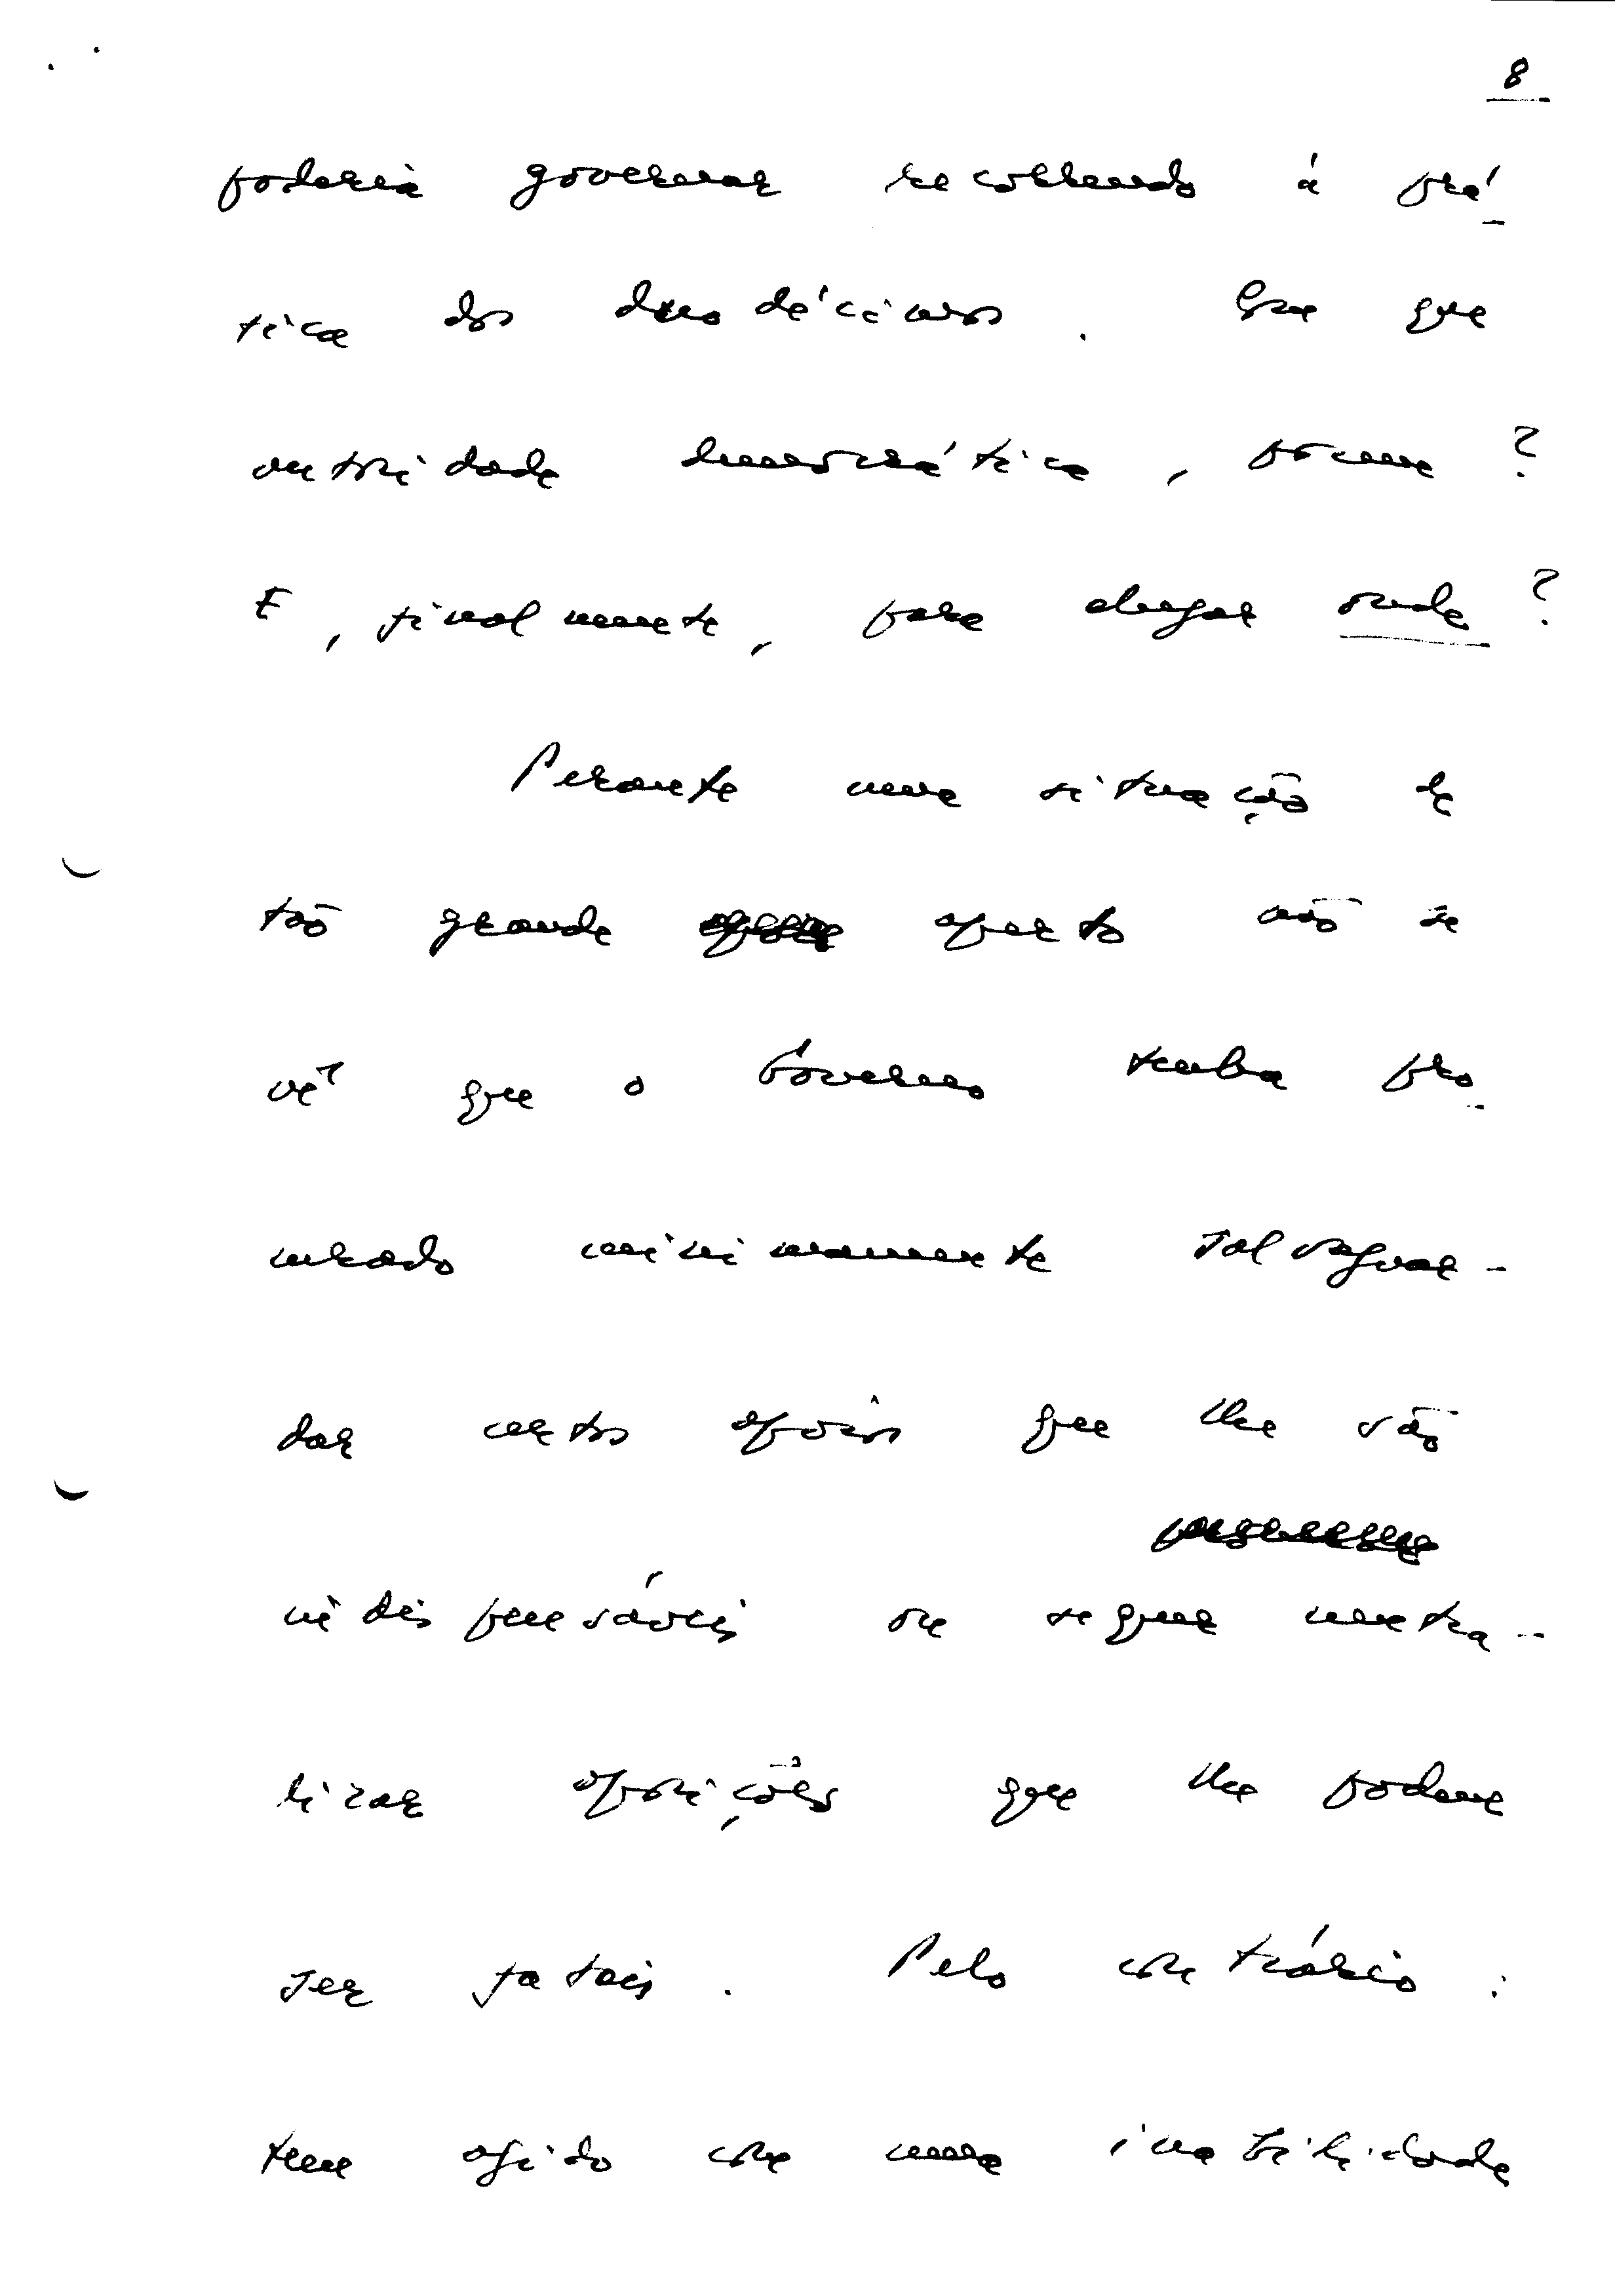 8
poderia governar recorrendo à prá-
tica dos duodécimos. Com que
autoridade democrática, porém?
E, finalmente, para chegar onde?
Perante uma situação de
tão grande aperto não se
vê que o Governo tenha pro-
curado minimamente salvaguar-
dar certos apoios que lhe são
indispensáveis ou sequer neutra-
lizar oposições que lhe podem
ser fatais. Pelo contrário:
tem agido com uma inabilidade